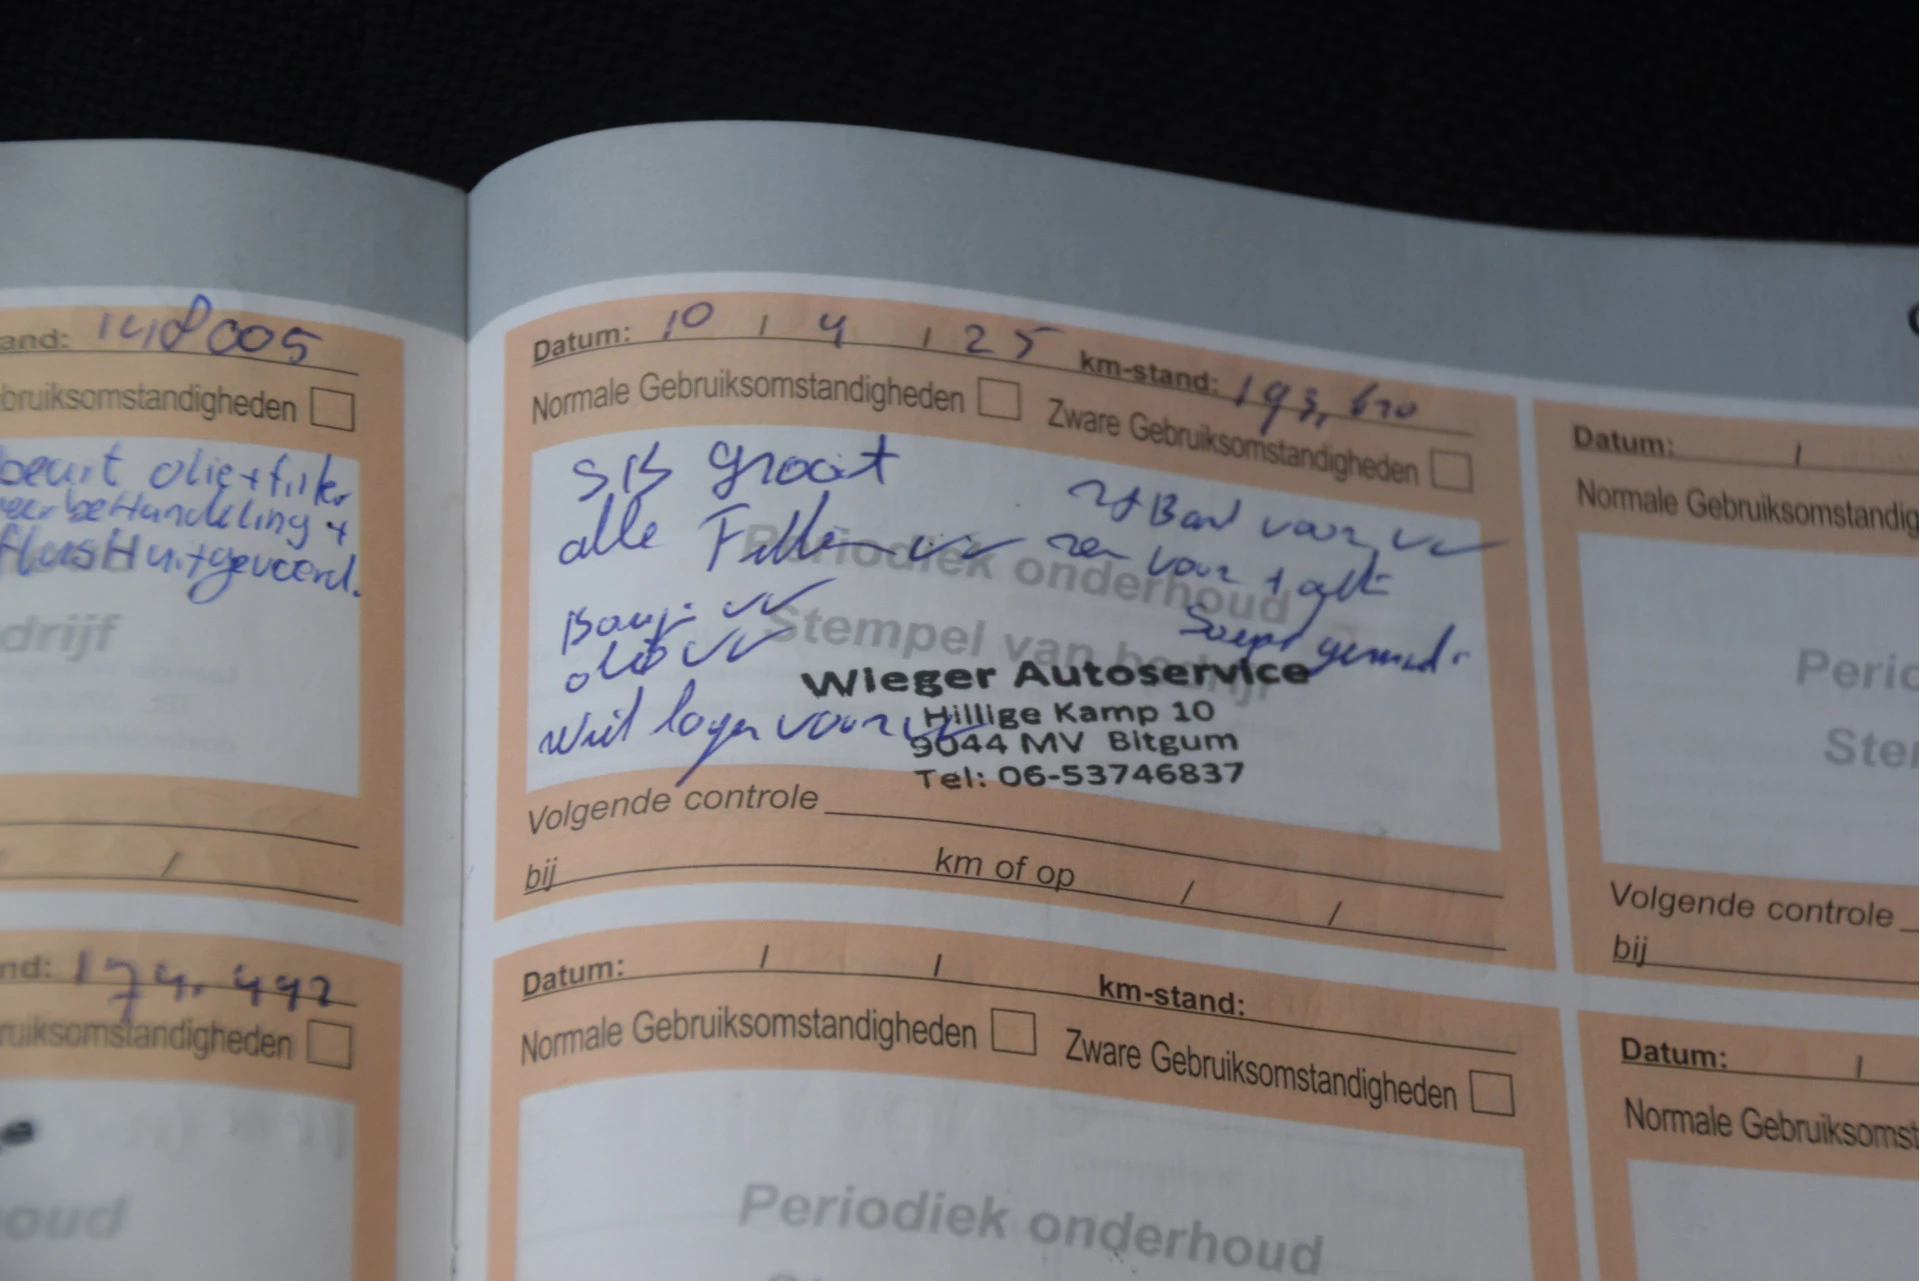 and: 148005
bruiksomstandigheden
beurt olie+filter
behandeling +
flush uitgevoerd.
drijf
nd: 174.492
ruiksomstandigheden
oud
Datum: 10 / 4 / 25 km-stand: 193,610
Normale Gebruiksomstandigheden
Zware Gebruiksomstandigheden
groot
alle Filters
2x Band voor
voor + achter
olie
Wiel lager voor
Periodiek onderhoud
Stempel van bedrijf
Wieger Autoservice
Hillige Kamp 10
9044 MV Bitgum
Tel: 06-53746837
Volgende controle
bij km of op / /
Datum: / / km-stand:
Normale Gebruiksomstandigheden
Zware Gebruiksomstandigheden
Periodiek onderhoud
Datum: /
Normale Gebruiksomstandig
Perio
Ste
Volgende controle
bij
Datum: /
Normale Gebruiksomst